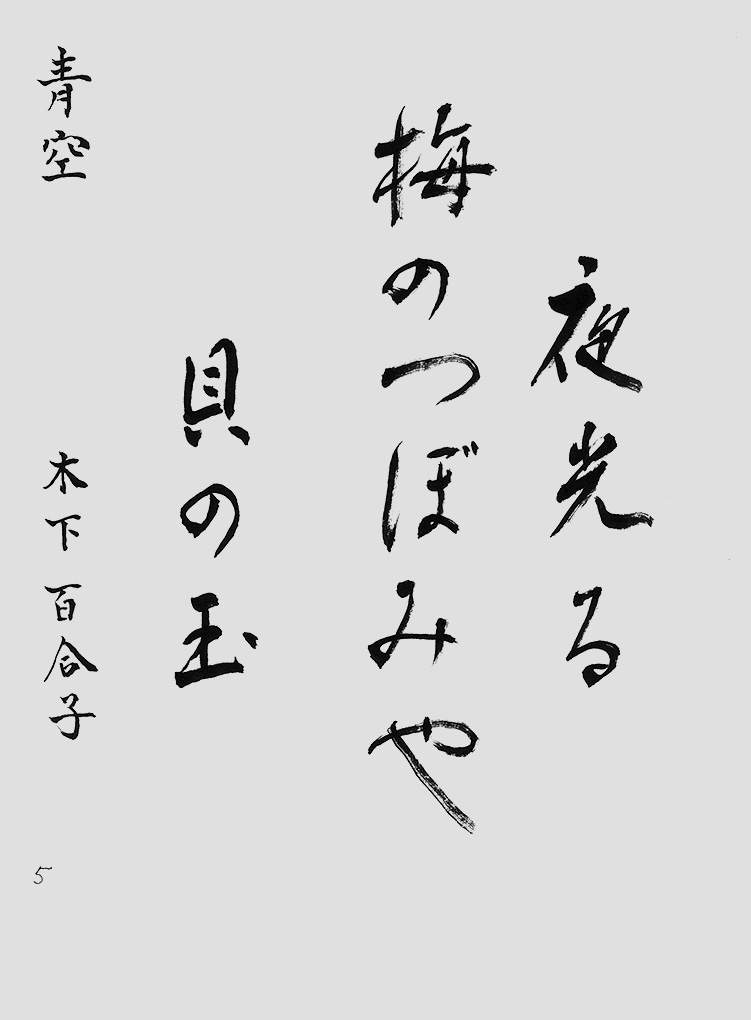 夜光る
梅のつぼみや
貝の玉
青空
木下百合子
5